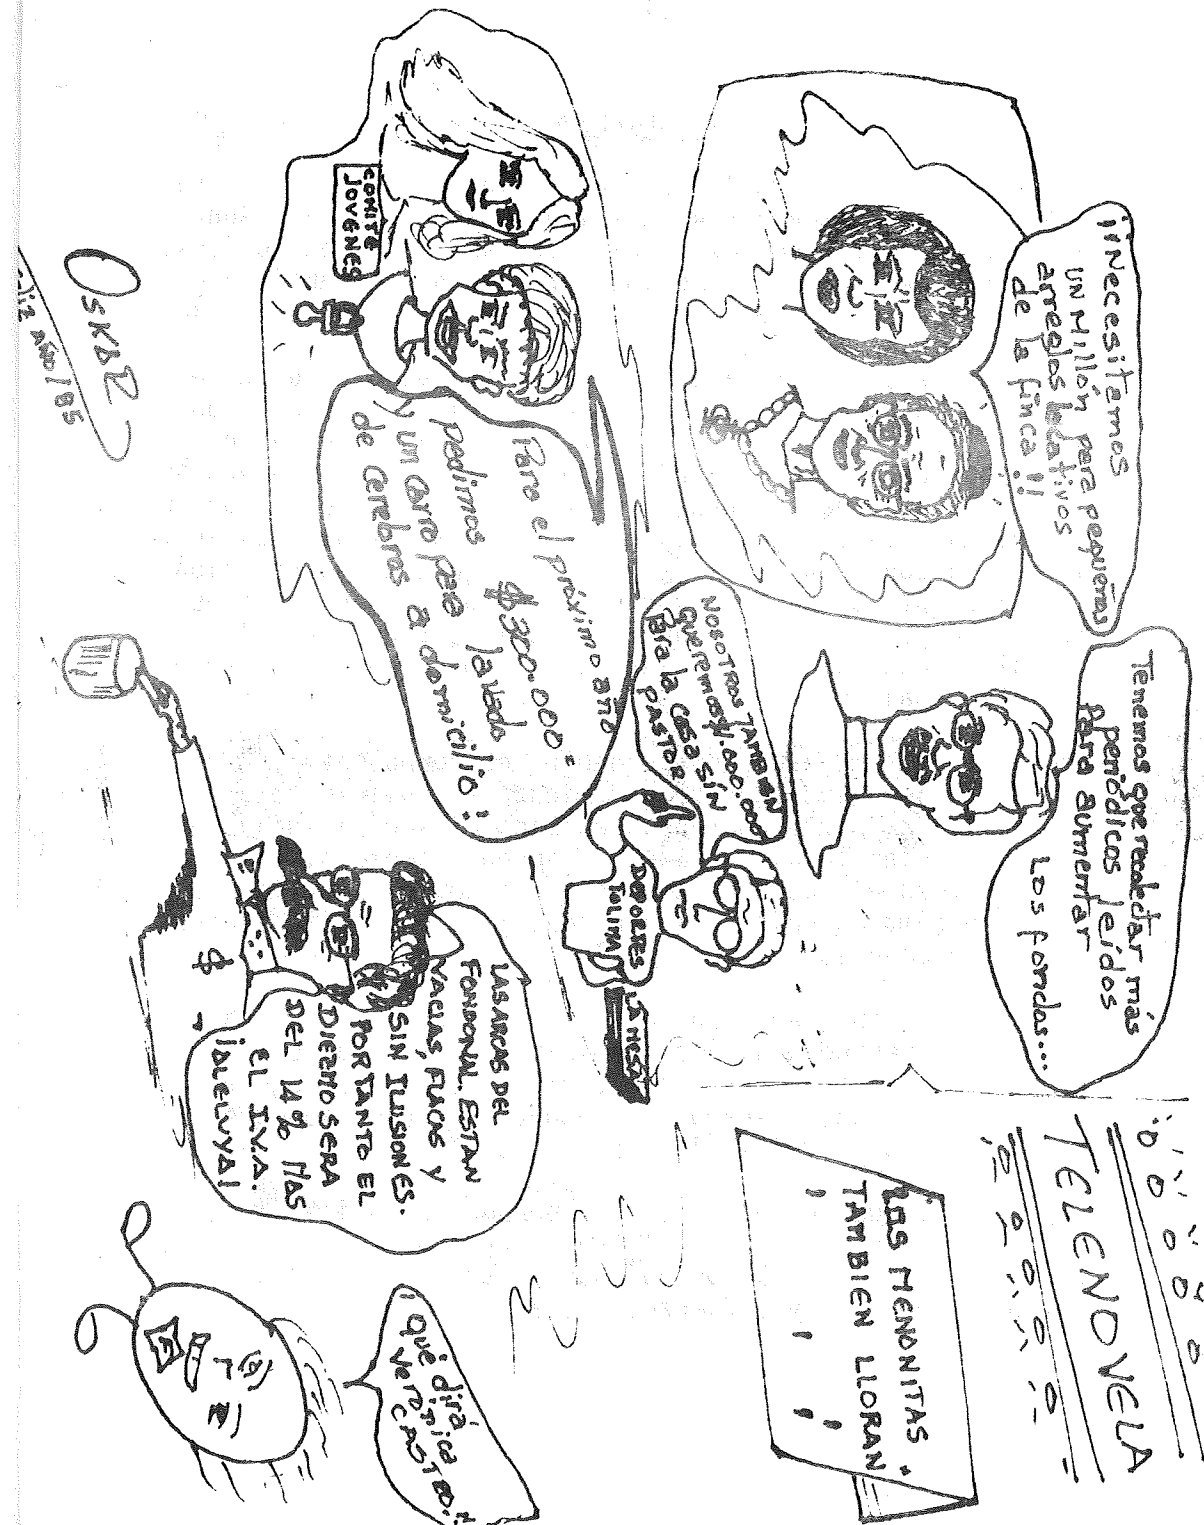 ¡¡Necesitamos
UN Millón para pequeños
arreglos locativos
de la finca!!
Tenemos que recolectar más
periódicos leídos
Para aumentar
Los fondos...
TELENOVELA
"LOS MENONITAS
TAMBIEN LLORAN"
NOSOTROS TAMBIEN
Queremos $1.000.000
Para la casa sin
PASTOR
DEPORTES
TOLIMA
LA MESA
COMITÉ
JOVENES
Para el próximo año
pedimos $300.000=
y un carro para lavado
de cerebros a domicilio!
LAS ARCAS DEL
FONDONAL. ESTAN
VACIAS, FLACAS Y
SIN ILUSIONES.
POR TANTO EL
DIEZMO SERA
DEL 14% MAS
EL I.V.A.
¡ALELUYA!
$
¡Qué dirá
Verónica
CASTRO!!
OSKAR
Feliz AÑO/85